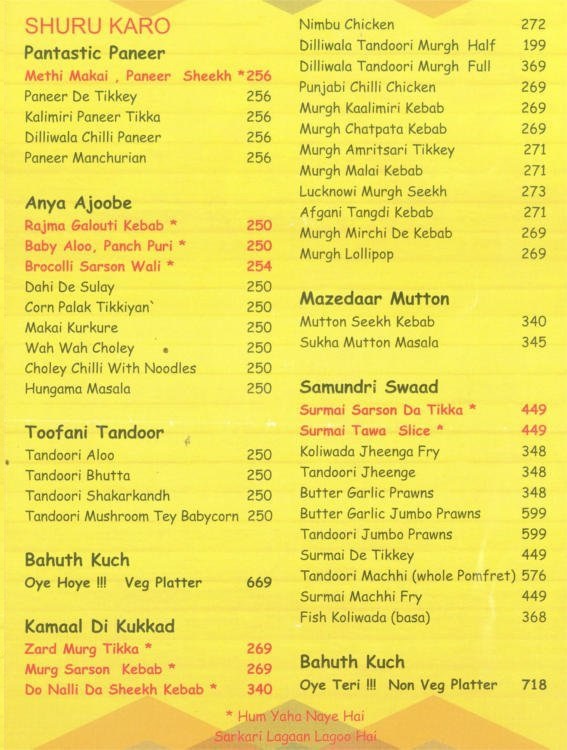 SHURU KARO
Pantastic Paneer
Methi Makai , Paneer Sheekh * 256
Paneer De Tikkey 256
Kalimiri Paneer Tikka 256
Dilliwala Chilli Paneer 256
Paneer Manchurian 256
Anya Ajoobe
Rajma Galouti Kebab * 250
Baby Aloo, Panch Puri * 250
Brocolli Sarson Wali * 254
Dahi De Sulay 250
Corn Palak Tikkiyan` 250
Makai Kurkure 250
Wah Wah Choley 250
Choley Chilli With Noodles 250
Hungama Masala 250
Toofani Tandoor
Tandoori Aloo 250
Tandoori Bhutta 250
Tandoori Shakarkandh 250
Tandoori Mushroom Tey Babycorn 250
Bahuth Kuch
Oye Hoye !!! Veg Platter 669
Kamaal Di Kukkad
Zard Murg Tikka * 269
Murg Sarson Kebab * 269
Do Nalli Da Sheekh Kebab * 340
Nimbu Chicken 272
Dilliwala Tandoori Murgh Half 199
Dilliwala Tandoori Murgh Full 369
Punjabi Chilli Chicken 269
Murgh Kaalimiri Kebab 269
Murgh Chatpata Kebab 269
Murgh Amritsari Tikkey 271
Murgh Malai Kebab 271
Lucknowi Murgh Seekh 273
Afgani Tangdi Kebab 271
Murgh Mirchi De Kebab 269
Murgh Lollipop 269
Mazedaar Mutton
Mutton Seekh Kebab 340
Sukha Mutton Masala 345
Samundri Swaad
Surmai Sarson Da Tikka * 449
Surmai Tawa Slice * 449
Koliwada Jheenga Fry 348
Tandoori Jheenge 348
Butter Garlic Prawns 348
Butter Garlic Jumbo Prawns 599
Tandoori Jumbo Prawns 599
Surmai De Tikkey 449
Tandoori Machhi (whole Pomfret) 576
Surmai Machhi Fry 449
Fish Koliwada (basa) 368
Bahuth Kuch
Oye Teri !!! Non Veg Platter 718
* Hum Yaha Naye Hai
Sarkari Lagaan Lagoo Hai